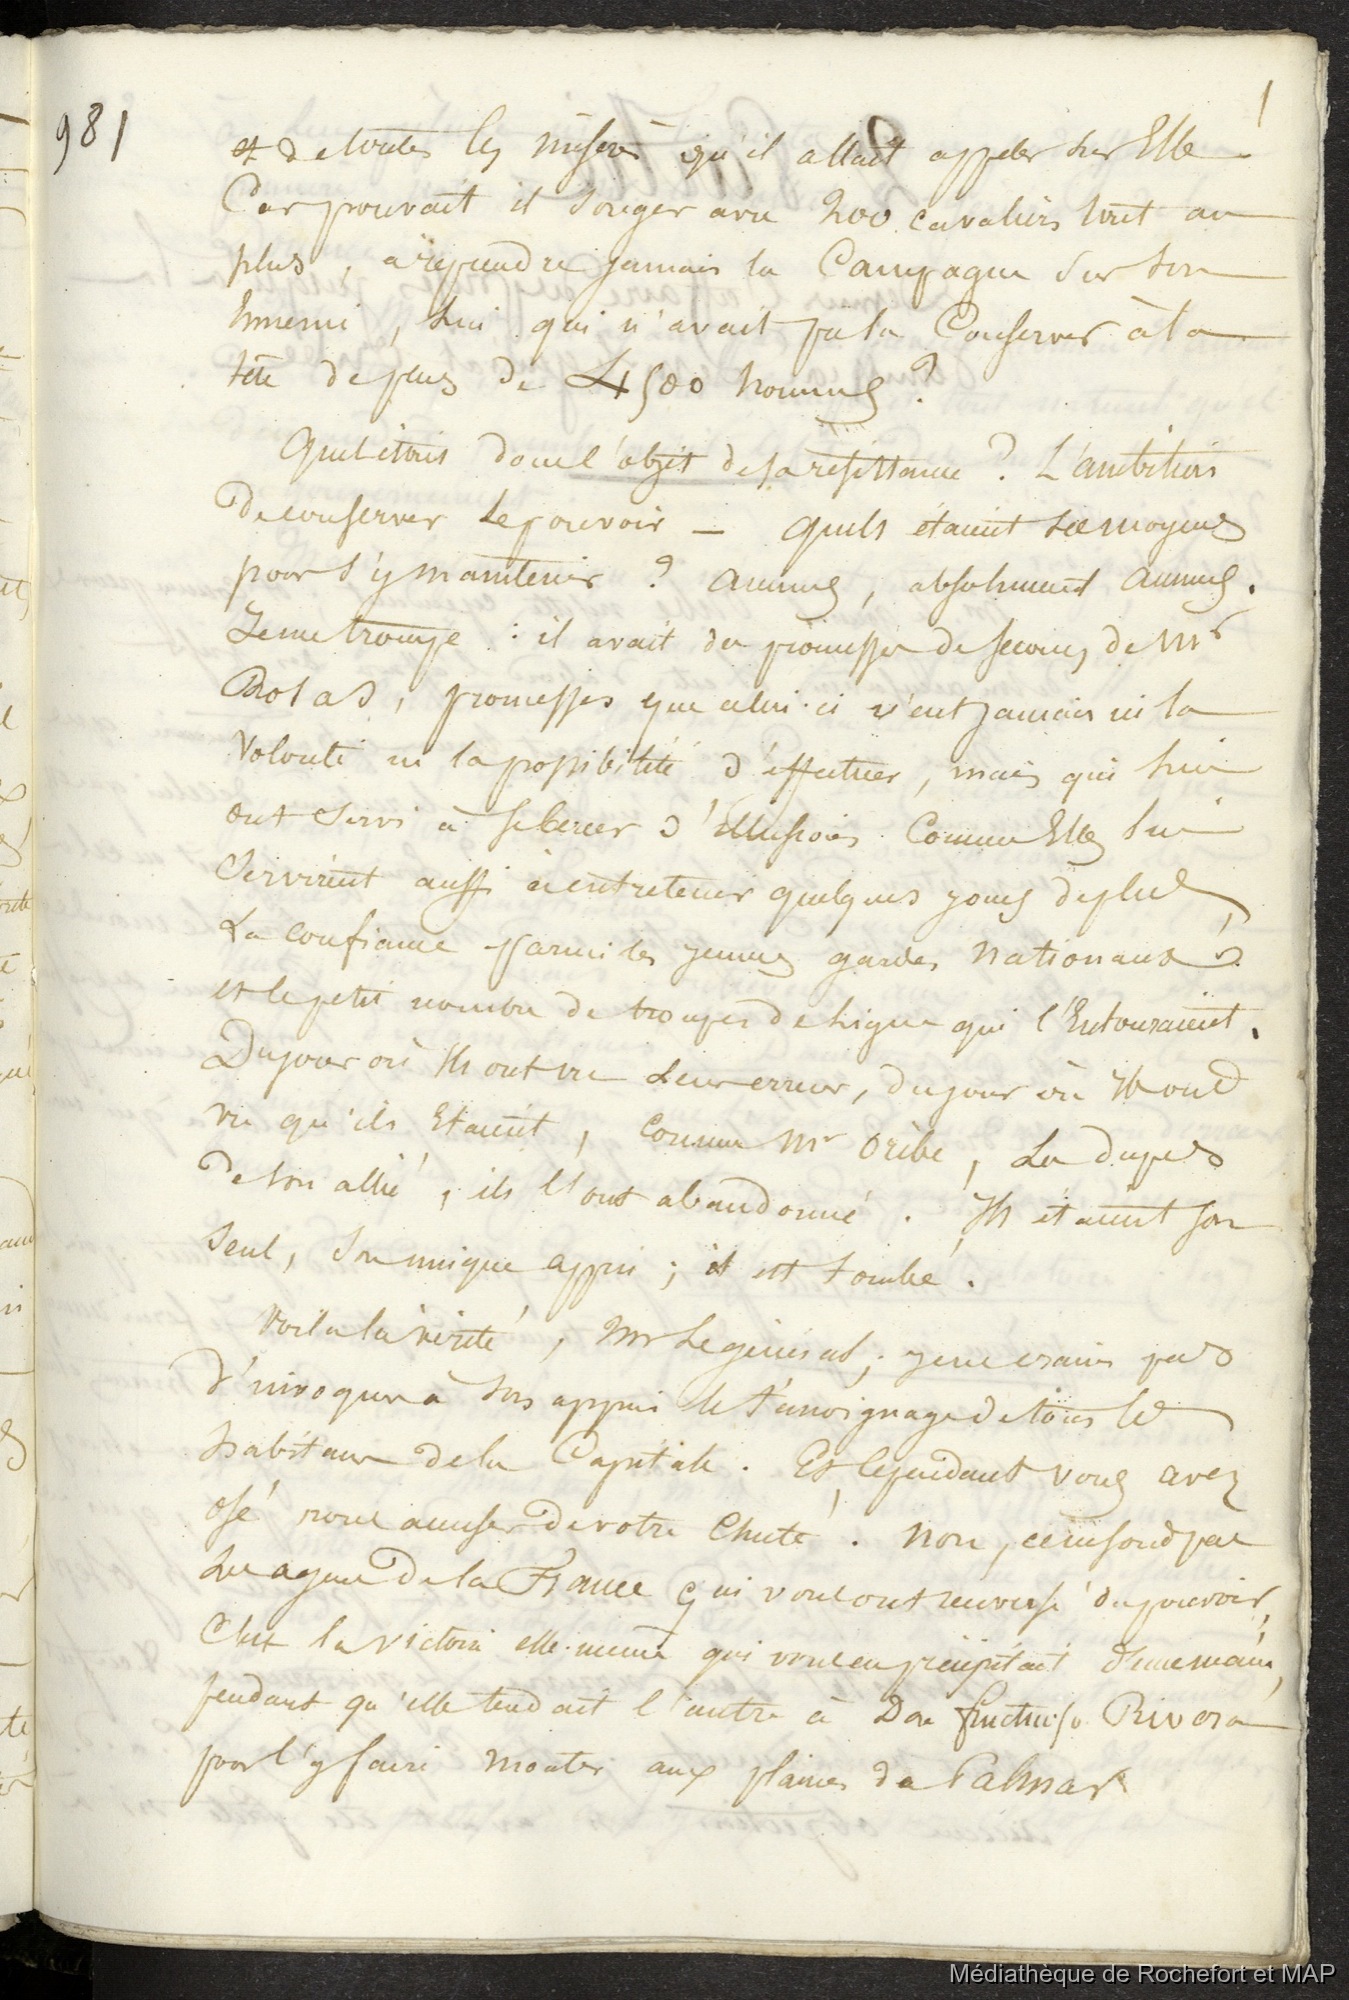 981
1
et de toutes les misères qu'il allait appeler sur Elle.
Car pouvait il songer avec 200 cavaliers tout au
plus, à reprendre jamais la Campagne sur son
Ennemi, Lui qui n'avait pu la Conserver à la
tête de plus de 4500 hommes ?
Quel était donc l'objet de sa résistance ? L'ambition
De conserver le pouvoir — quels étaient ses moyens
pour s'y maintenir ? aucuns, absolument aucuns.
Je me trompe : il avait des promesses de secours de Mr
Rosas, promesses que celui-ci n'eut jamais ni la
Volonté ni la possibilité d'effectuer, mais qui lui
ont servi à se bercer d'illusions. Comme Elles lui
Servirent aussi à entretenir quelques jours de plus
La confiance parmi les jeunes gardes Nationaux
et le petit nombre de troupes de Ligne qui l'Entouraient.
Du jour où Ils ont vu Leur erreur, du jour où Ils ont
vu qu'ils Etaient, comme Mr Oribe, Les dupes
De son allié, ils l'ont abandonné. Ils étaient son
Seul, Son unique appui ; il est tombé.
Voila la vérité, Mr Le général ; je ne crains pas
d'invoquer à son appui le témoignage de tous les
habitans de la Capitale. Et cependant vous avez
osé nous accuser De votre Chute ! Non, ce ne sont pas
Les agens De la France qui vous ont renversé du pouvoir,
C'est la victoire elle-même qui vous en précipitait d'une main,
pendant qu'elle tendait l'autre à Don fructuoso Rivera
pour l'y faire monter aux plaines de Palmar
Médiathèque de Rochefort et MAP